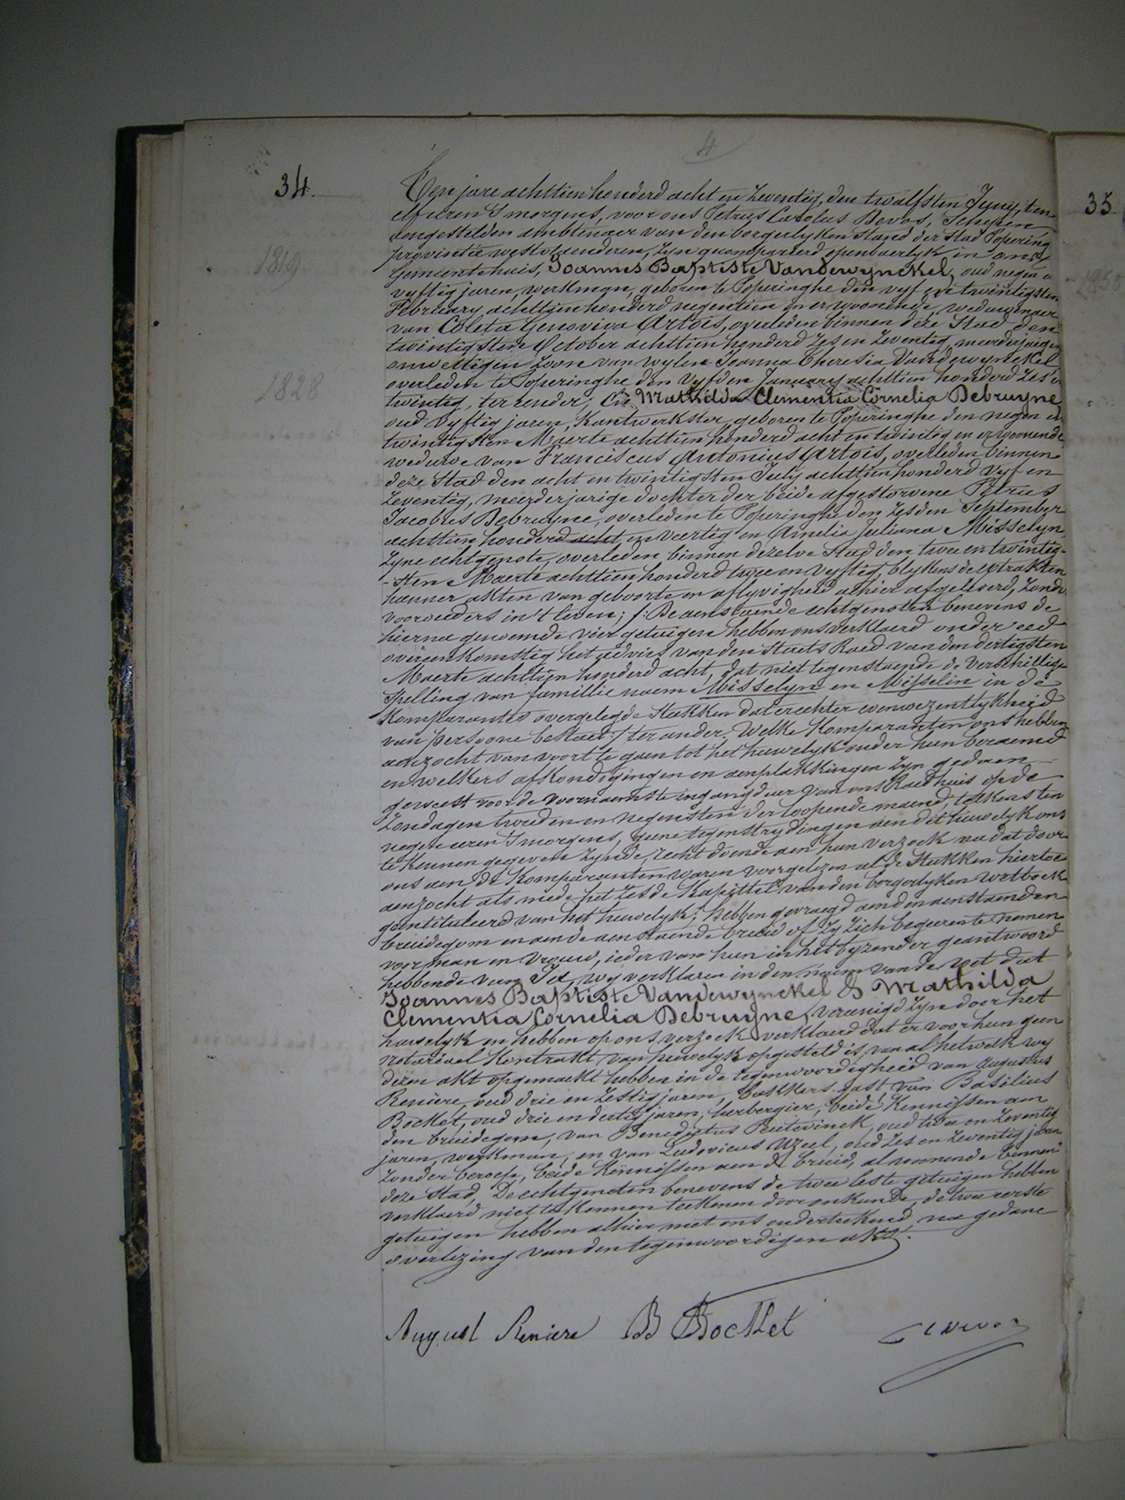 4
34.
35
1819
1828
1850
Ten jare achttien honderd acht en zeventig, den twalfsten Juny, ten
elf uren 's morgens, voor ons Petrus Carolus Devos, Schepen
aengestelden ambtenaer van den borgerlyken stand der Stad Poperinghe
provintie westvlaenderen, zyn gecompareerd openbaerlyk in ons
Gemeentehuis, Joannes Baptiste Vandewynckel, oud negen en
vyftig jaren, werkman, geboren te Poperinghe den vyf en twintigsten
February achttien honderd negentien en er wonende, weduwenaer
van Coleta Genoviva Artois, overleden binnen deze Stad den
twintigsten October achttien honderd zes en zeventig, meerderjarigen
onwettigen zoon van wylen Joanna Theresia Vandewynckel
overleden te Poperinghe den vyfden January achttien honderd zes en
twintig, ter eender; En Mathilda Clementia Cornelia Debruyne
oud vyftig jaren, Kantwerkster, geboren te Poperinghe den negen en
twintigsten Maerte achttien honderd acht en twintig en er woonende
weduwe van Franciscus Antonius Artois, overleden binnen
deze Stad den acht en twintigsten July achttien honderd vyf en
zeventig, meerderjarige dochter der beide afgestorvene Petrus
Jacobus Debruyne, overleden te Poperinghe den zesden September
achttien honderd acht en veertig en Amelia Juliana Misselyn
zyne echtgenote, overleden binnen dezelve Stad den twee en twintig-
-sten Maerte achttien honderd twee en vyftig blykens de extrakten
hunner akten van geboorte en aflyvigheid alhier afgeleverd, zonder
voorouders in 't leven; /: De aenstaende echtgenoten benevens de
hierna genoemde vier getuigen hebben ons verklaerd onder eed
overeenkomstig het advies van den Staets Raed van den dertigsten
Maerte achttien honderd acht, dat niettegenstaende de verschillige
Spelling van famillie naem Misselyn en Misseline in de
Komparantes overgelegde Stukken dat er echter eenwezentlykheid
van persone bestaet :/ ter ander. Welke Komparanten ons hebben
aenzocht van voort te gaen tot het huwelyk onder hun beraemd
en welkers afkondigingen en aenplakkingen zyn gedaen
geweest voor de voornaemste ingangdeur van ons Raedhuis op de
Zondagen tweeden en negensten der loopende maend, telkens ten
negen uren 's morgens, geene tegenstrydingen aen dit huwelyk ons
te kennen gegeven zynde, recht doende aen hun verzoek na dat door
ons aen de Komparanten waren voorgelezen al de Stukken hiertoe
aenzocht als mede het zesde Kapittel van den borgerlyken wetboek
geintituleerd van het huwelyk; hebben gevraegd aen den aenstaenden
bruidegom en aen de aenstaende bruid of zy zich begeeren te nemen
voor man en vrouw, ieder van hun in het byzonder geantwoord
hebbende van Ja, wy verklaren in den naem van de wet dat
Joannes Baptiste Vandewynckel & Mathilda
Clementia Cornelia Debruyne, vereenigd zyn door het
huwelyk en hebben op ons verzoek verklaerd dat er voor hun geen
notariael Kontrakt van huwelyk opgesteld is, van al hetwelk wy
dezen akt opgemaekt hebben in de tegenwoordigheid van Augustus
Reniere, oud drie en zestig jaren, bakkers gast, van Basilius
Bocket, oud drie en dertig jaren, herbergier, beide Kennissen aen
den bruidegom, van Benedictus Beutevinck, oud twee en zeventig
jaren, werkman, en van Ludovicus Uzeel, oud zes en zeventig jaren
zonder beroep, beide Kennissen aen de bruid, al wonende binnen
deze Stad, De echtgenoten benevens de twee leste getuigen hebben
verklaerd niet te kunnen teekenen door onkunde, de twee eerste
getuigen hebben alhier met ons onderteekend, na gedane
overlezing van den tegenwoordigen akt.
August Reniere B Bocket